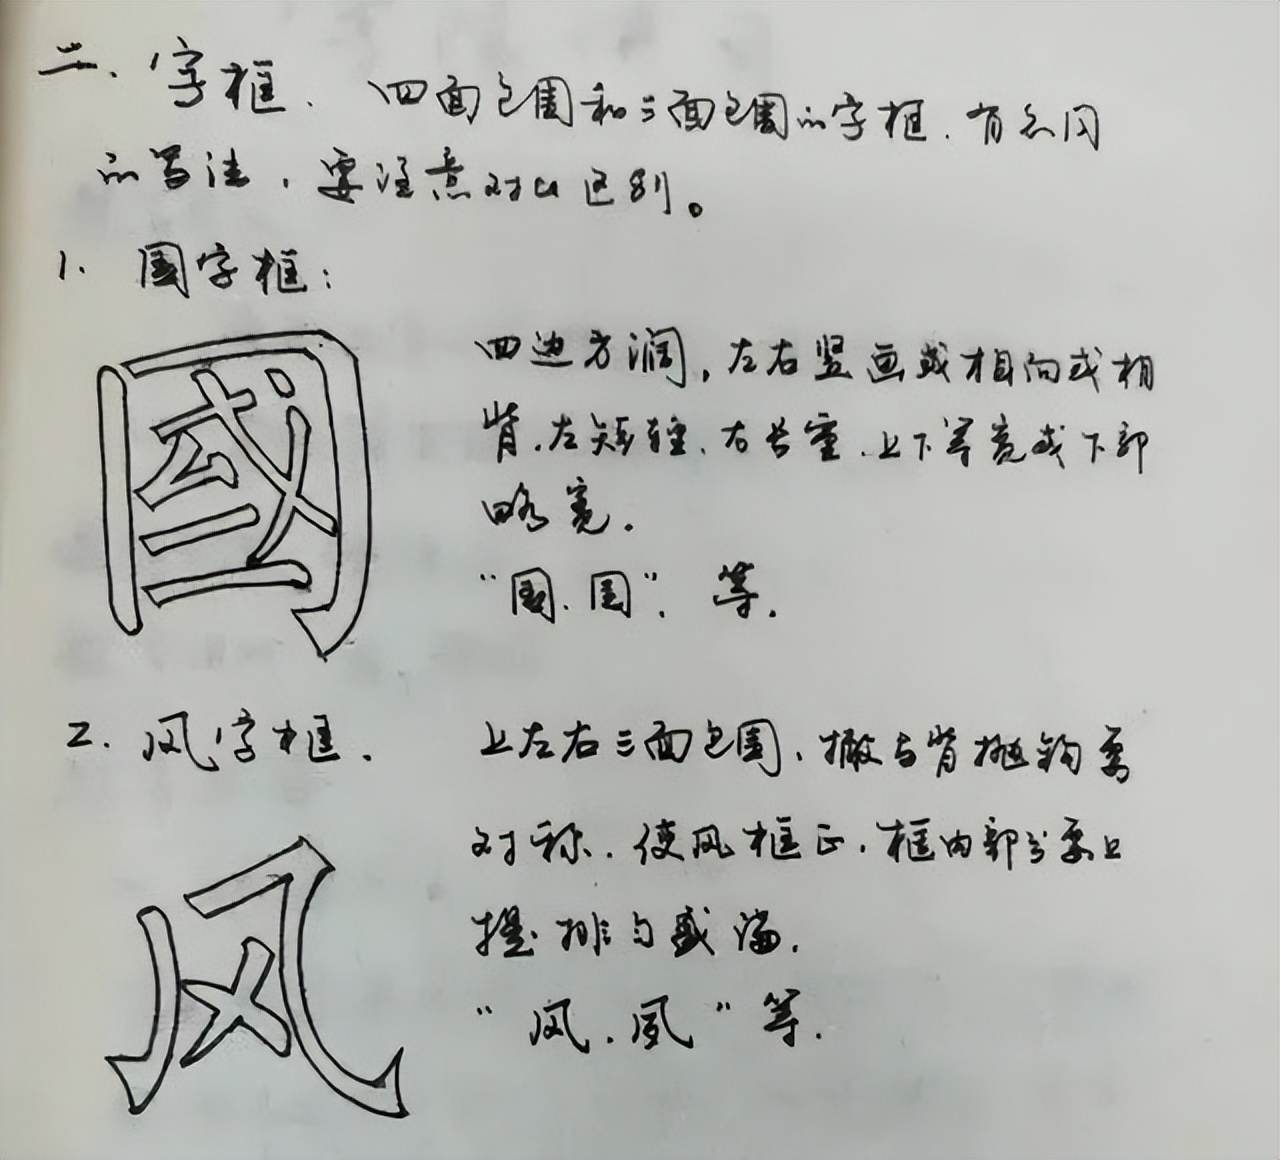 二、字框、四面包围和三面包围的字框、有不同
的写法，要注意对比区别。
1. 国字框：
國
四边方润，左右竖画或相向或相
背、左短轻、右长重、上下等宽或下部
略宽.
“围、国”、等.
2. 风字框.
风
上左右三面包围、撇与背抛钩要
对称、使风框正、框内部分要上
提、排匀感满.
“风、夙”等.